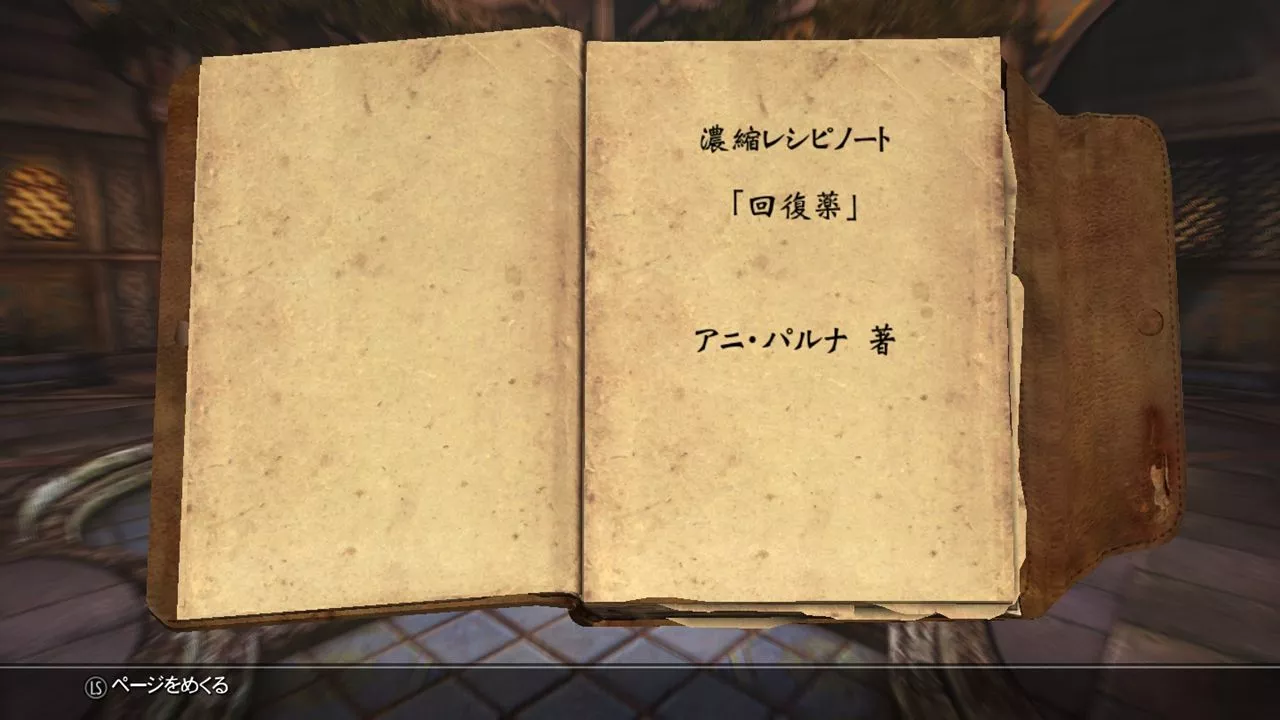 濃縮レシピノート
「回復薬」
アニ・パルナ 著
LS ページをめくる